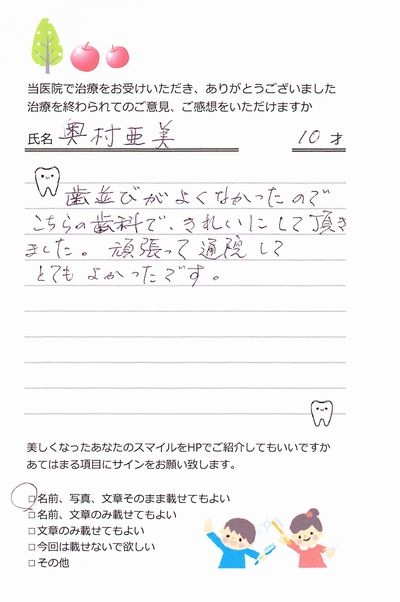 当医院で治療をお受けいただき、ありがとうございました
治療を終わられてのご意見、ご感想をいただけますか
氏名 奥村亜美 10才
歯並びがよくなかったので
こちらの歯科で、きれいにして頂き
ました。頑張って通院して
とてもよかったです。
美しくなったあなたのスマイルをHPでご紹介してもいいですか
あてはまる項目にサインをお願い致します。
□名前、写真、文章そのまま載せてもよい
□名前、文章のみ載せてもよい
□文章のみ載せてもよい
□今回は載せないで欲しい
□その他